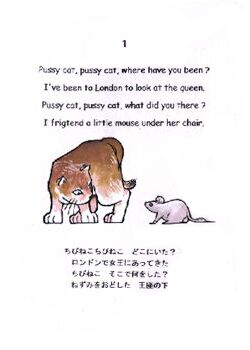 1
Pussy cat, pussy cat, where have you been ?
I've been to London to look at the queen.
Pussy cat, pussy cat, what did you there ?
I frigtend a little mouse under her chair.
ちびねこちびねこ　どこにいた？
ロンドンで女王にあってきた
ちびねこ　そこで何をした？
ねずみをおどした　王座の下